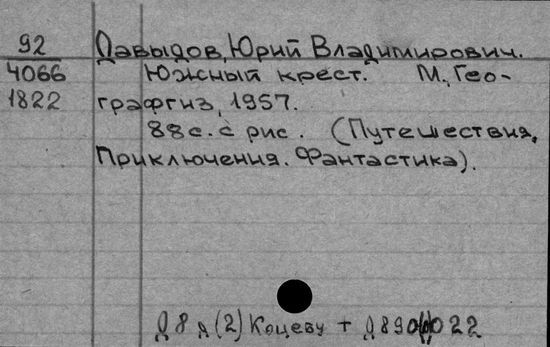 92 Давыдов, Юрий Владимирович.
4066 Южный крест. М., Гео-
1822 графгиз, 1957.
88 с. с рис. (Путешествия.
Приключения. Фантастика).
Д8я(2) Коцеву +